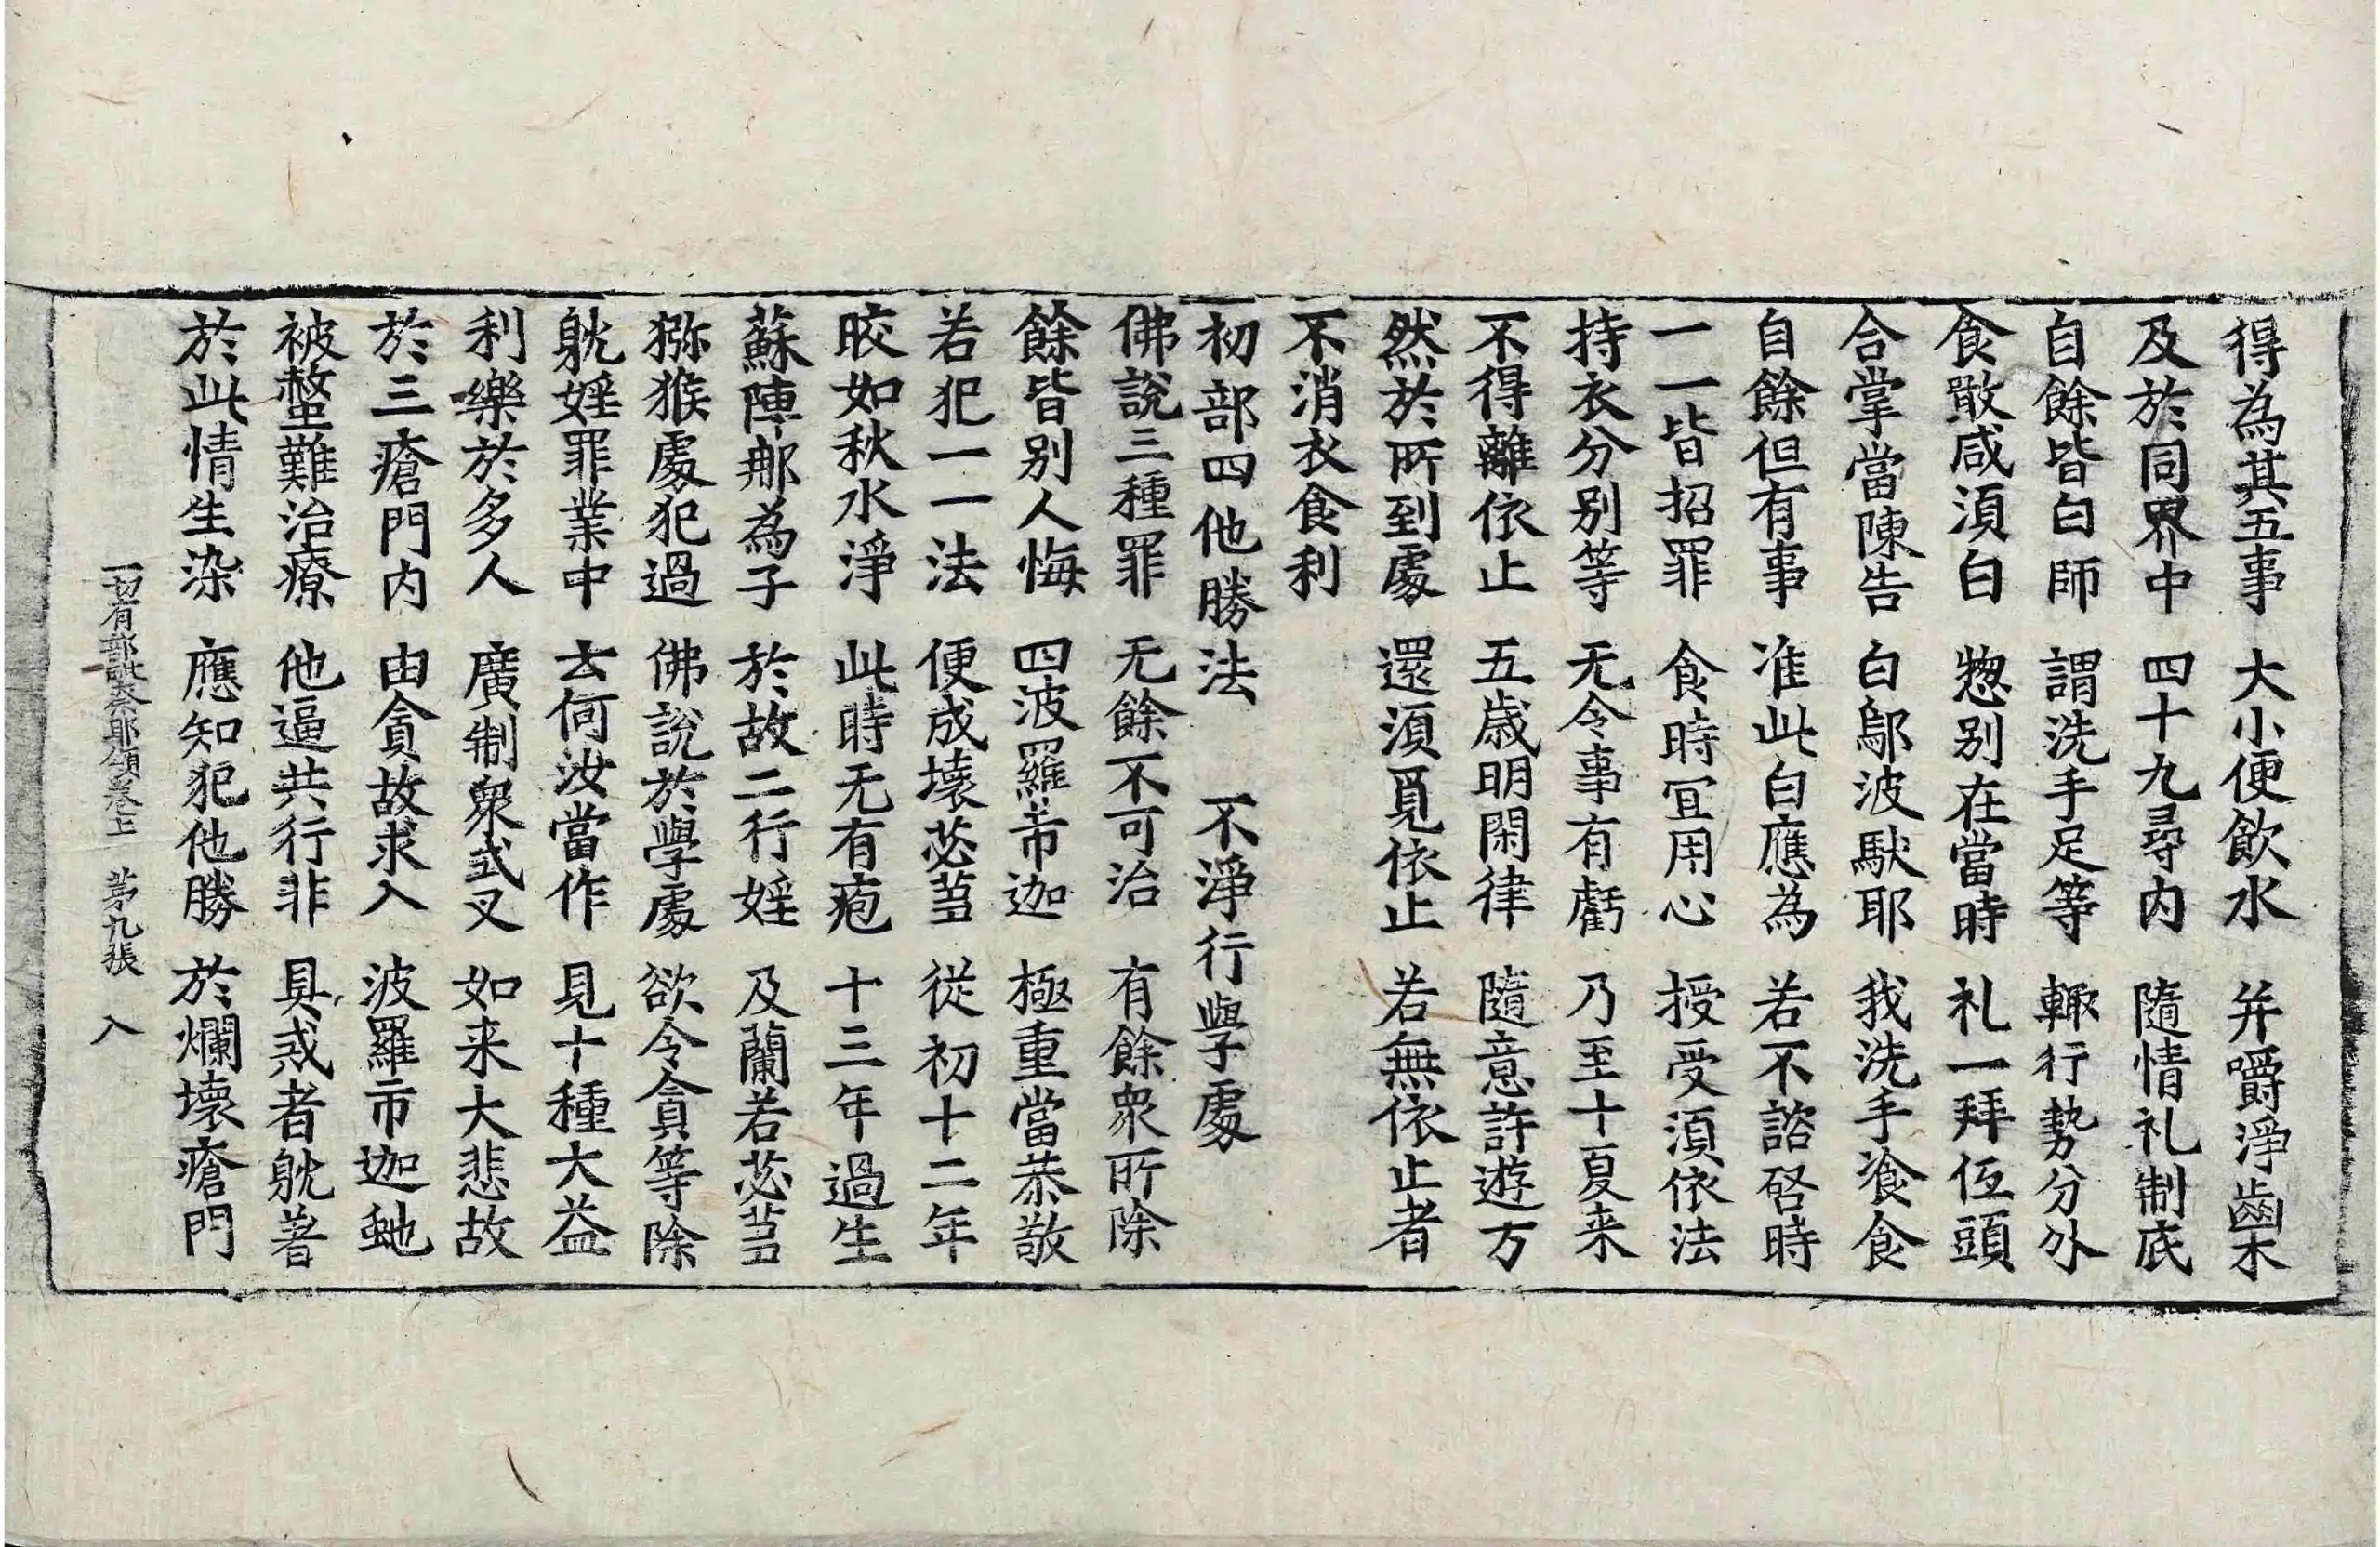 得為其五事 大小便飲水 并嚼淨齒木
及於同界中 四十九尋內 隨情礼制底
自餘皆白師 謂洗手足等 輙行勢分外
食噉咸湏白 惣别在當時 礼一拜伍頭
合掌當陳告 白鄔波馱耶 我洗手飡食
自餘但有事 准此白應為 若不諮啓時
一一皆招罪 食時冝用心 授受湏依法
持衣分别等 无令事有虧 乃至十夏来
不得離依止 五歲明閑律 隨意許遊方
然於所到處 還湏覓依止 若無依止者
不消衣食利
初部四他勝法 不淨行學處
佛說三種罪 无餘不可治 有餘衆所除
餘皆别人悔 四波羅市迦 極重當恭敬
若犯一一法 便成壞苾芻 從初十二年
晈如秋水淨 此時无有疱 十三年過生
蘇陣那為子 於故二行婬 及蘭若苾芻
猕猴處犯過 佛說於學處 欲令貪等除
躭婬罪業中 云何汝當作 見十種大益
利樂於多人 廣制衆式叉 如来大悲故
於三瘡門內 由貪故求入 波羅市迦虵
被螫難治療 他逼共行非 具惑者躭著
於此情生染 應知犯他勝 於爛壞瘡門
一切有部毗奈耶頌卷上 苐九張 入